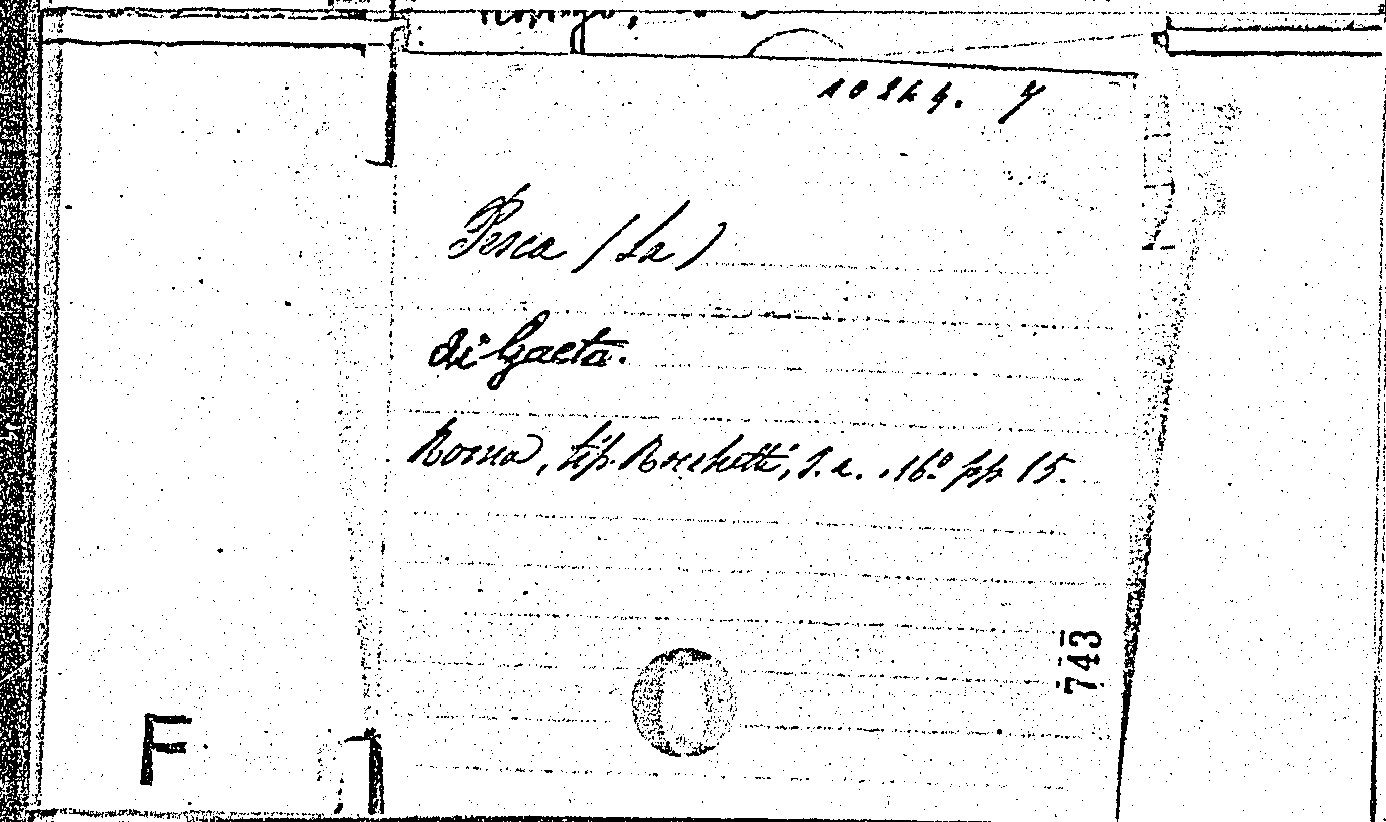 10244. 7
Pesca (La)
di Gaeta.
Roma, tip. Rocchetti, s. a. .16.º pp 15.
743
F